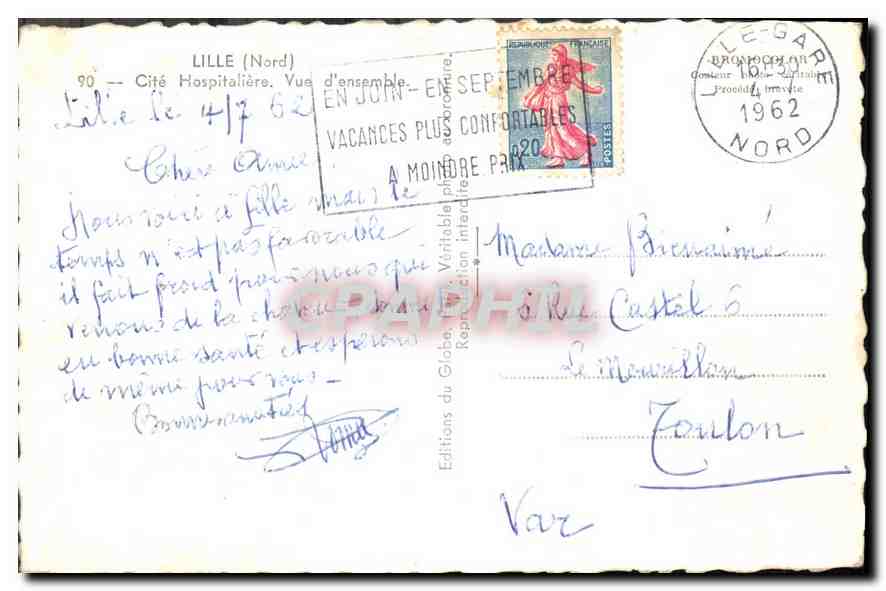 LILLE (Nord)
90 — Cité Hospitalière. Vue d'ensemble.
Lille le 4/7 62
Chère Amie
Nous voici à Lille mais le
temps n'est pas favorable
il fait froid pour nous qui
venons de la chaleur
en bonne santé et espérons
de même pour vous
EN JUIN - EN SEPTEMBRE
VACANCES PLUS CONFORTABLES
A MOINDRE PRIX
REPUBLIQUE FRANÇAISE
0,20
POSTES
LILLE-GARE
4
1962
NORD
BROMOCOLOR
Procédé breveté
Editions du Globe. Véritable photo au bromure.
Reproduction interdite.
CPAPHIL
Madame Bienaimé
5 Rue Castel 6
Le Mourillon
Toulon
Var